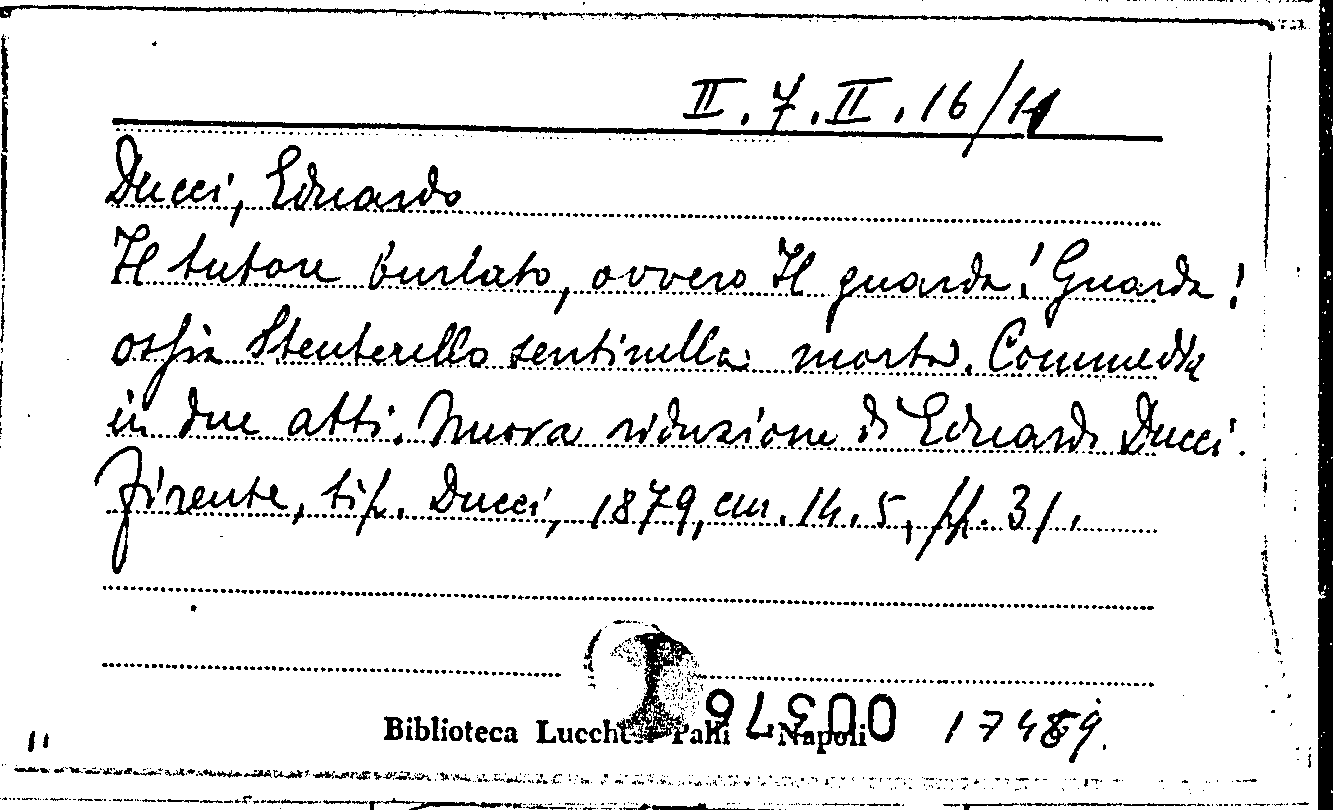 II.7.II.16/11
Ducci, Eduardo
Il tutore burlato, ovvero Il guarda! Guarda!
ossia Stenterello sentinella morta. Commedia
in due atti. Nuova riduzione di Eduardo Ducci.
Firenze, tip. Ducci, 1879, cm. 14.5, pp. 31.
Biblioteca Lucchesi Palli - Napoli
00376